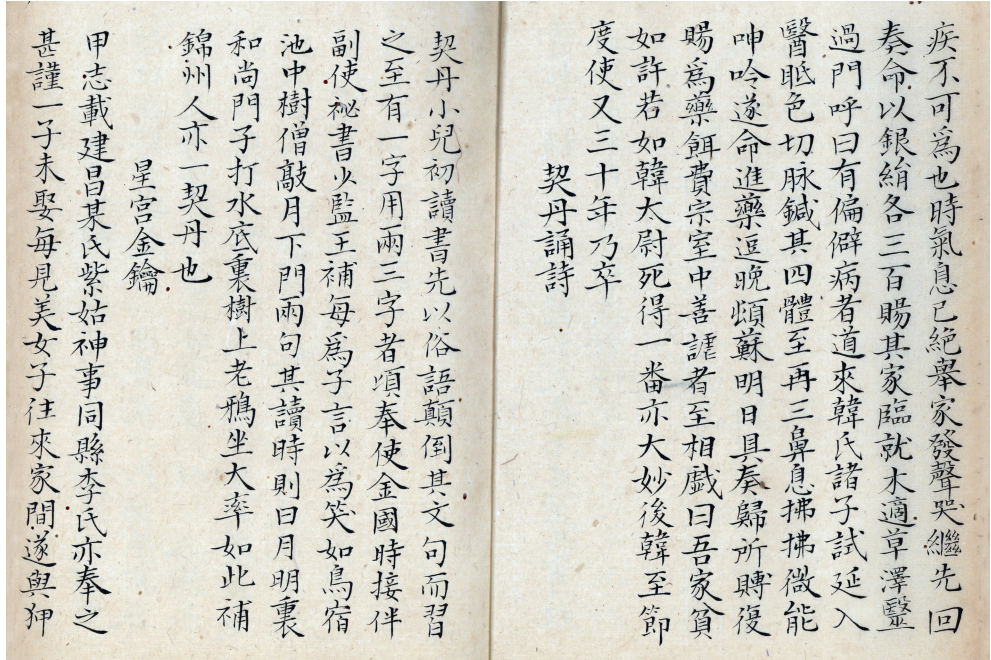 疾不可爲也時氣息已絶舉家發聲哭繼先回
奏命以銀絹各三百賜其家臨就木適草澤毉
過門呼曰有偏僻病者道來韓氏諸子試延入
醫眂色切脉鍼其四體至再三鼻息拂拂微能
呻吟遂命進藥逗晚頓蘇明日具奏歸所賻復
賜爲藥餌費宗室中善謔者至相戱曰吾家貧
如許若如韓太尉死得一番亦大妙後韓至節
度使又三十年乃卒
契丹誦詩
契丹小兒初讀書先以俗語顛倒其文句而習
之至有一字用兩三字者頃奉使金國時接伴
副使祕書少監王補每爲予言以爲笑如鳥宿
池中樹僧敲月下門兩句其讀時則曰月明裏
和尚門子打水底裏樹上老鴉坐大率如此補
錦州人亦一契丹也
星宮金鑰
甲志載建昌某氏紫姑神事同縣李氏亦奉之
甚謹一子未娶每見美女子往來家間遂與狎